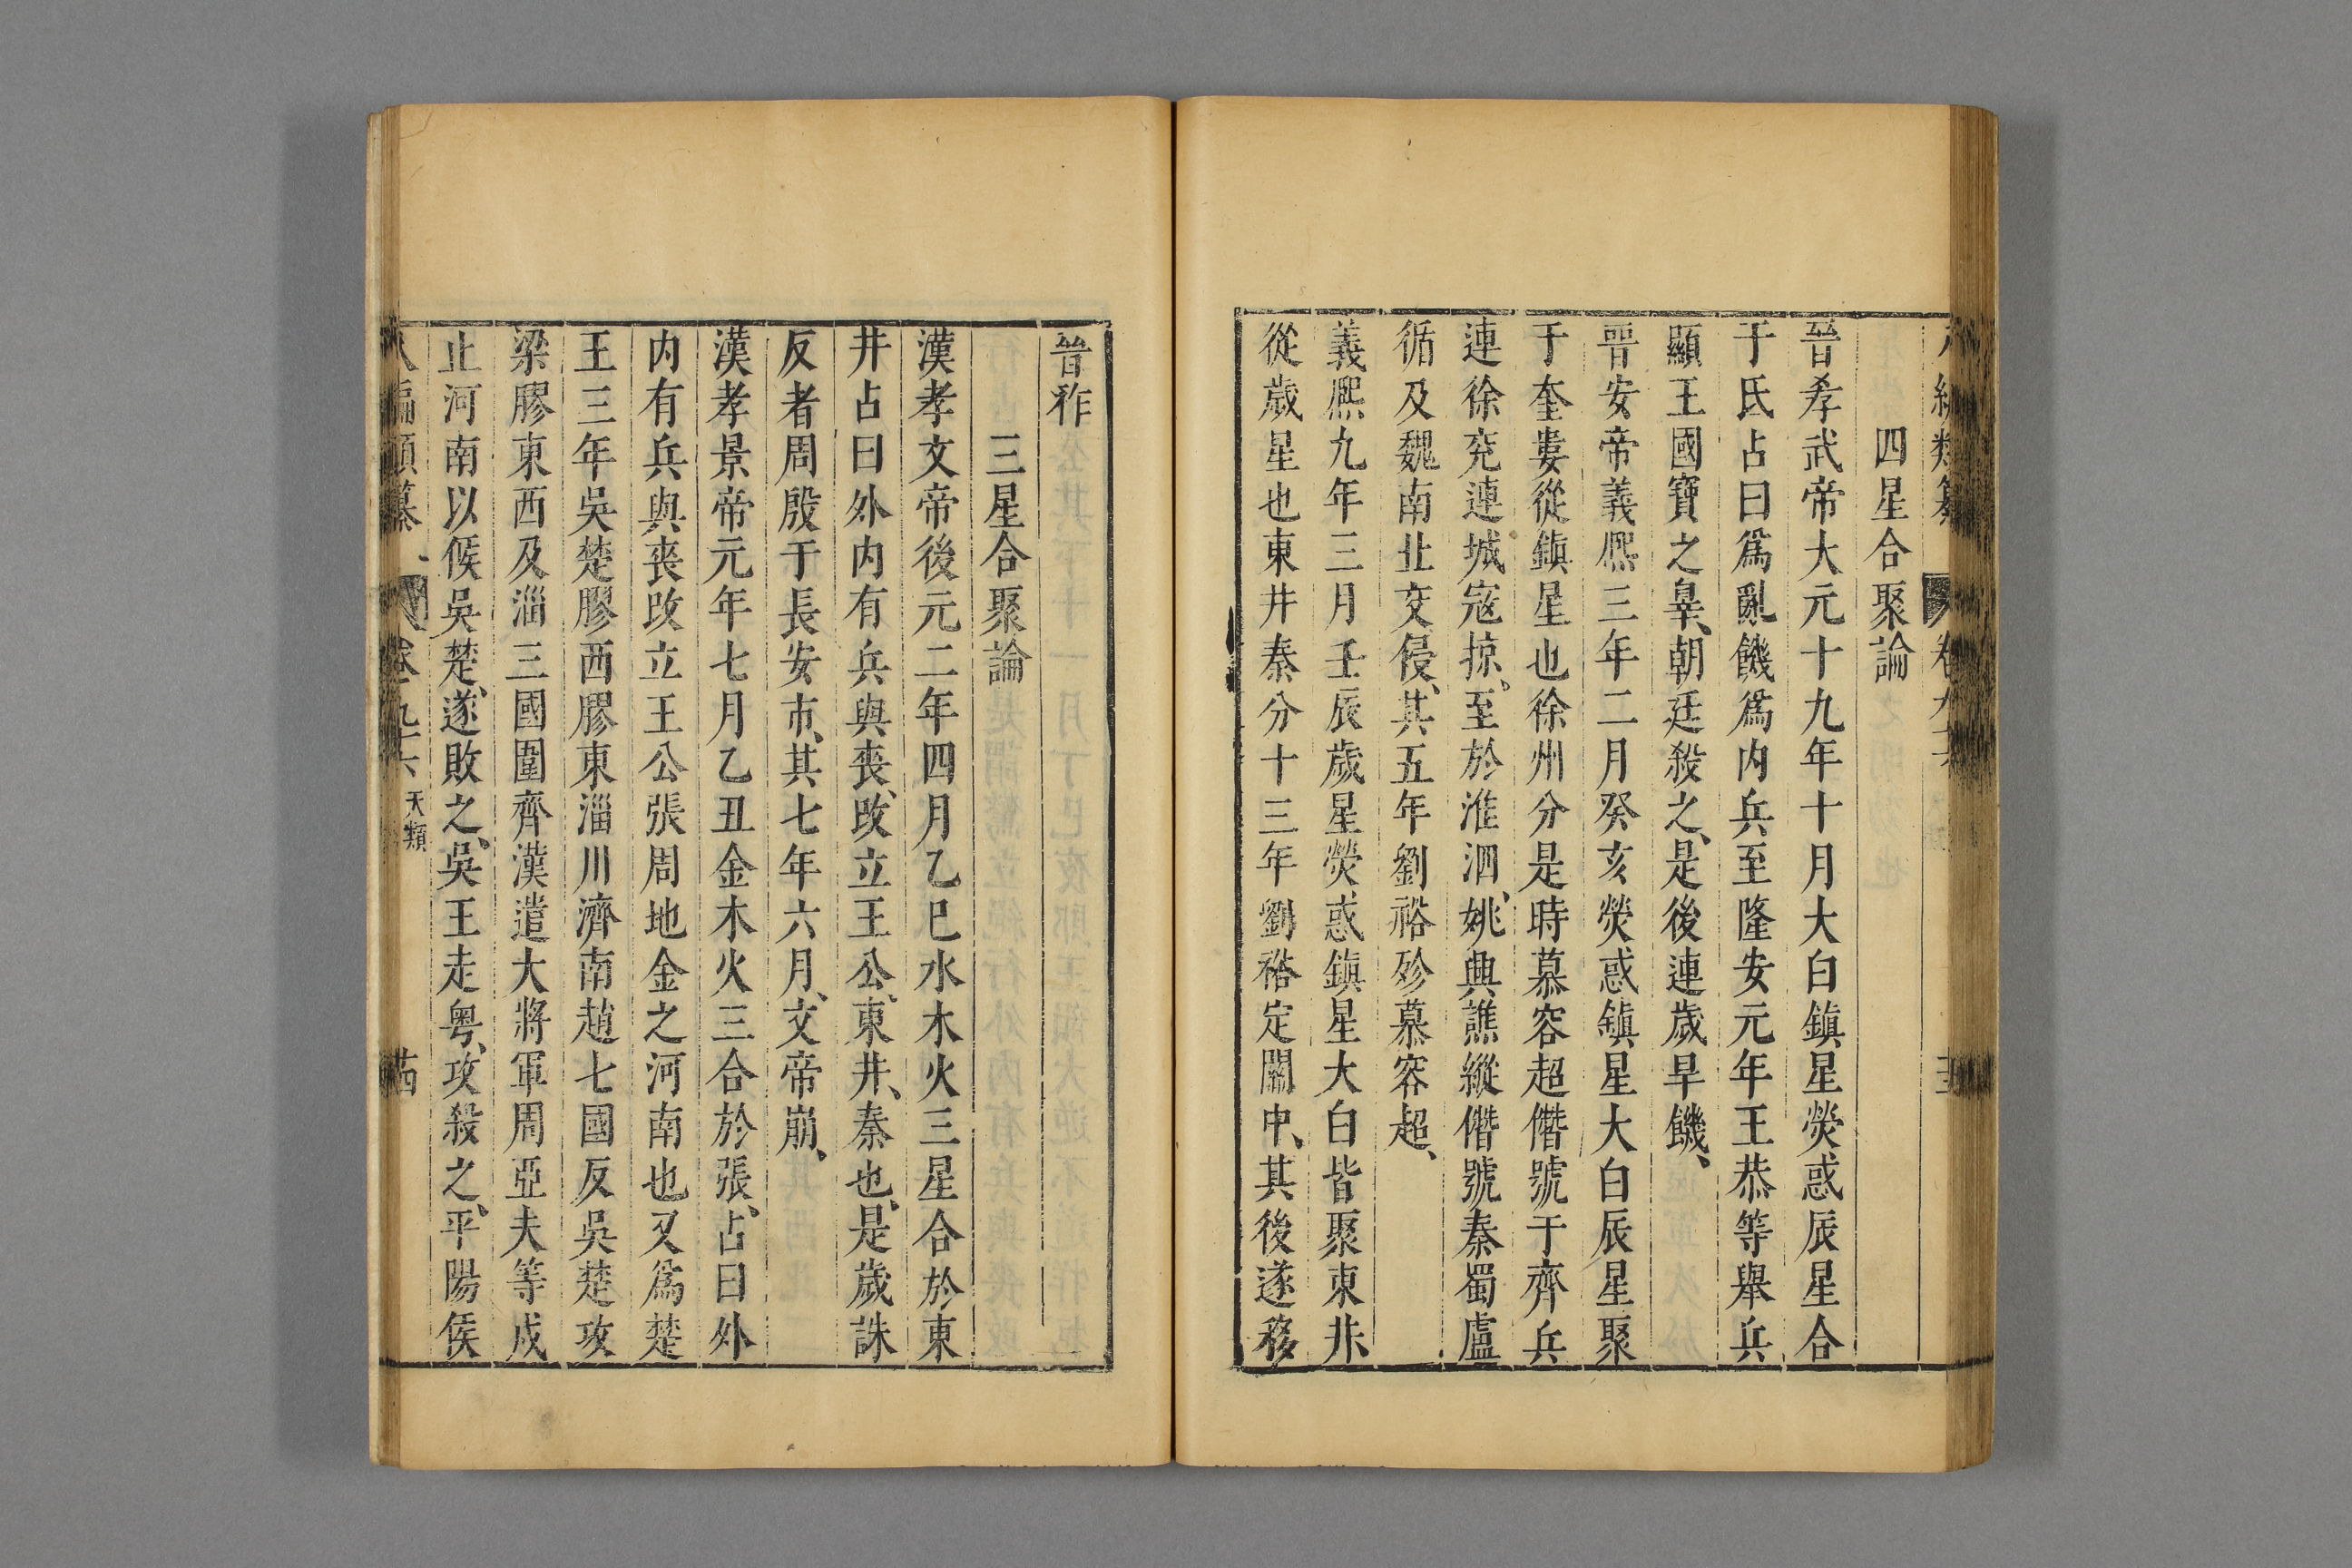 四星合聚論
晉孝武帝大元十九年十月大白鎮星熒惑辰星合
于氐占曰爲亂饑爲内兵至隆安元年王恭等舉兵
顯王國寶之辠、朝廷殺之、是後連歲旱饑、
晉安帝義熈三年二月癸亥熒惑鎮星大白辰星聚
于奎婁從鎮星也徐州分是時慕容超僭號于齊兵
連徐兖連城寇掠。至於淮泗、姚興譙縱僭號秦蜀盧
循及魏南北交侵、其五年劉裕殄慕容超、
義熈九年三月壬辰歲星熒惑鎮星大白皆聚東井
從歲星也東井秦分十三年劉裕定關中、其後遂移
晉祚
三星合聚論
漢孝文帝後元二年四月乙巳水木火三星合於東
井占曰外内有兵與喪、改立王公、東井、秦也、是歲誅
反者周殷于長安市、其七年六月、文帝崩、
漢孝景帝元年七月乙丑金木火三合於張、占曰外
内有兵與喪改立王公張周地金之河南也又爲楚
王三年吳楚膠西膠東淄川濟南趙七國反吳楚攻
梁膠東西及淄三國圍齊漢遣大將軍周亞夫等戍
止河南以候吳楚、遂敗之、吳王走粤、攻殺之、平陽侯
天類